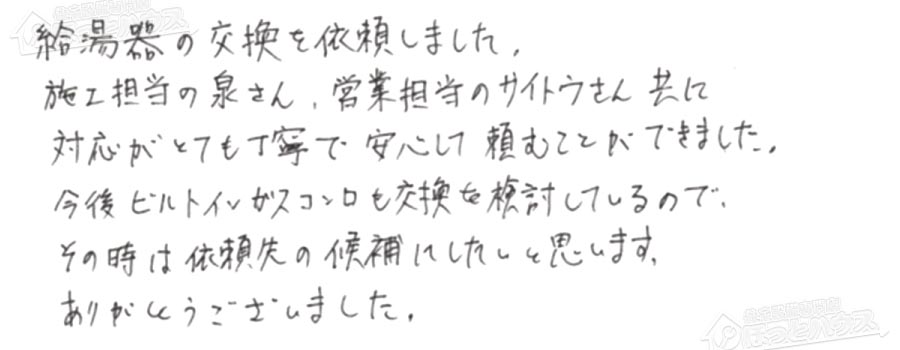 給湯器の交換を依頼しました。
施工担当の泉さん、営業担当のサイトウさん共に
対応がとても丁寧で安心して頼むことができました。
今後ビルトインガスコンロも交換を検討しているので、
その時は依頼先の候補にしたいと思います。
ありがとうございました。
ほっとハウス